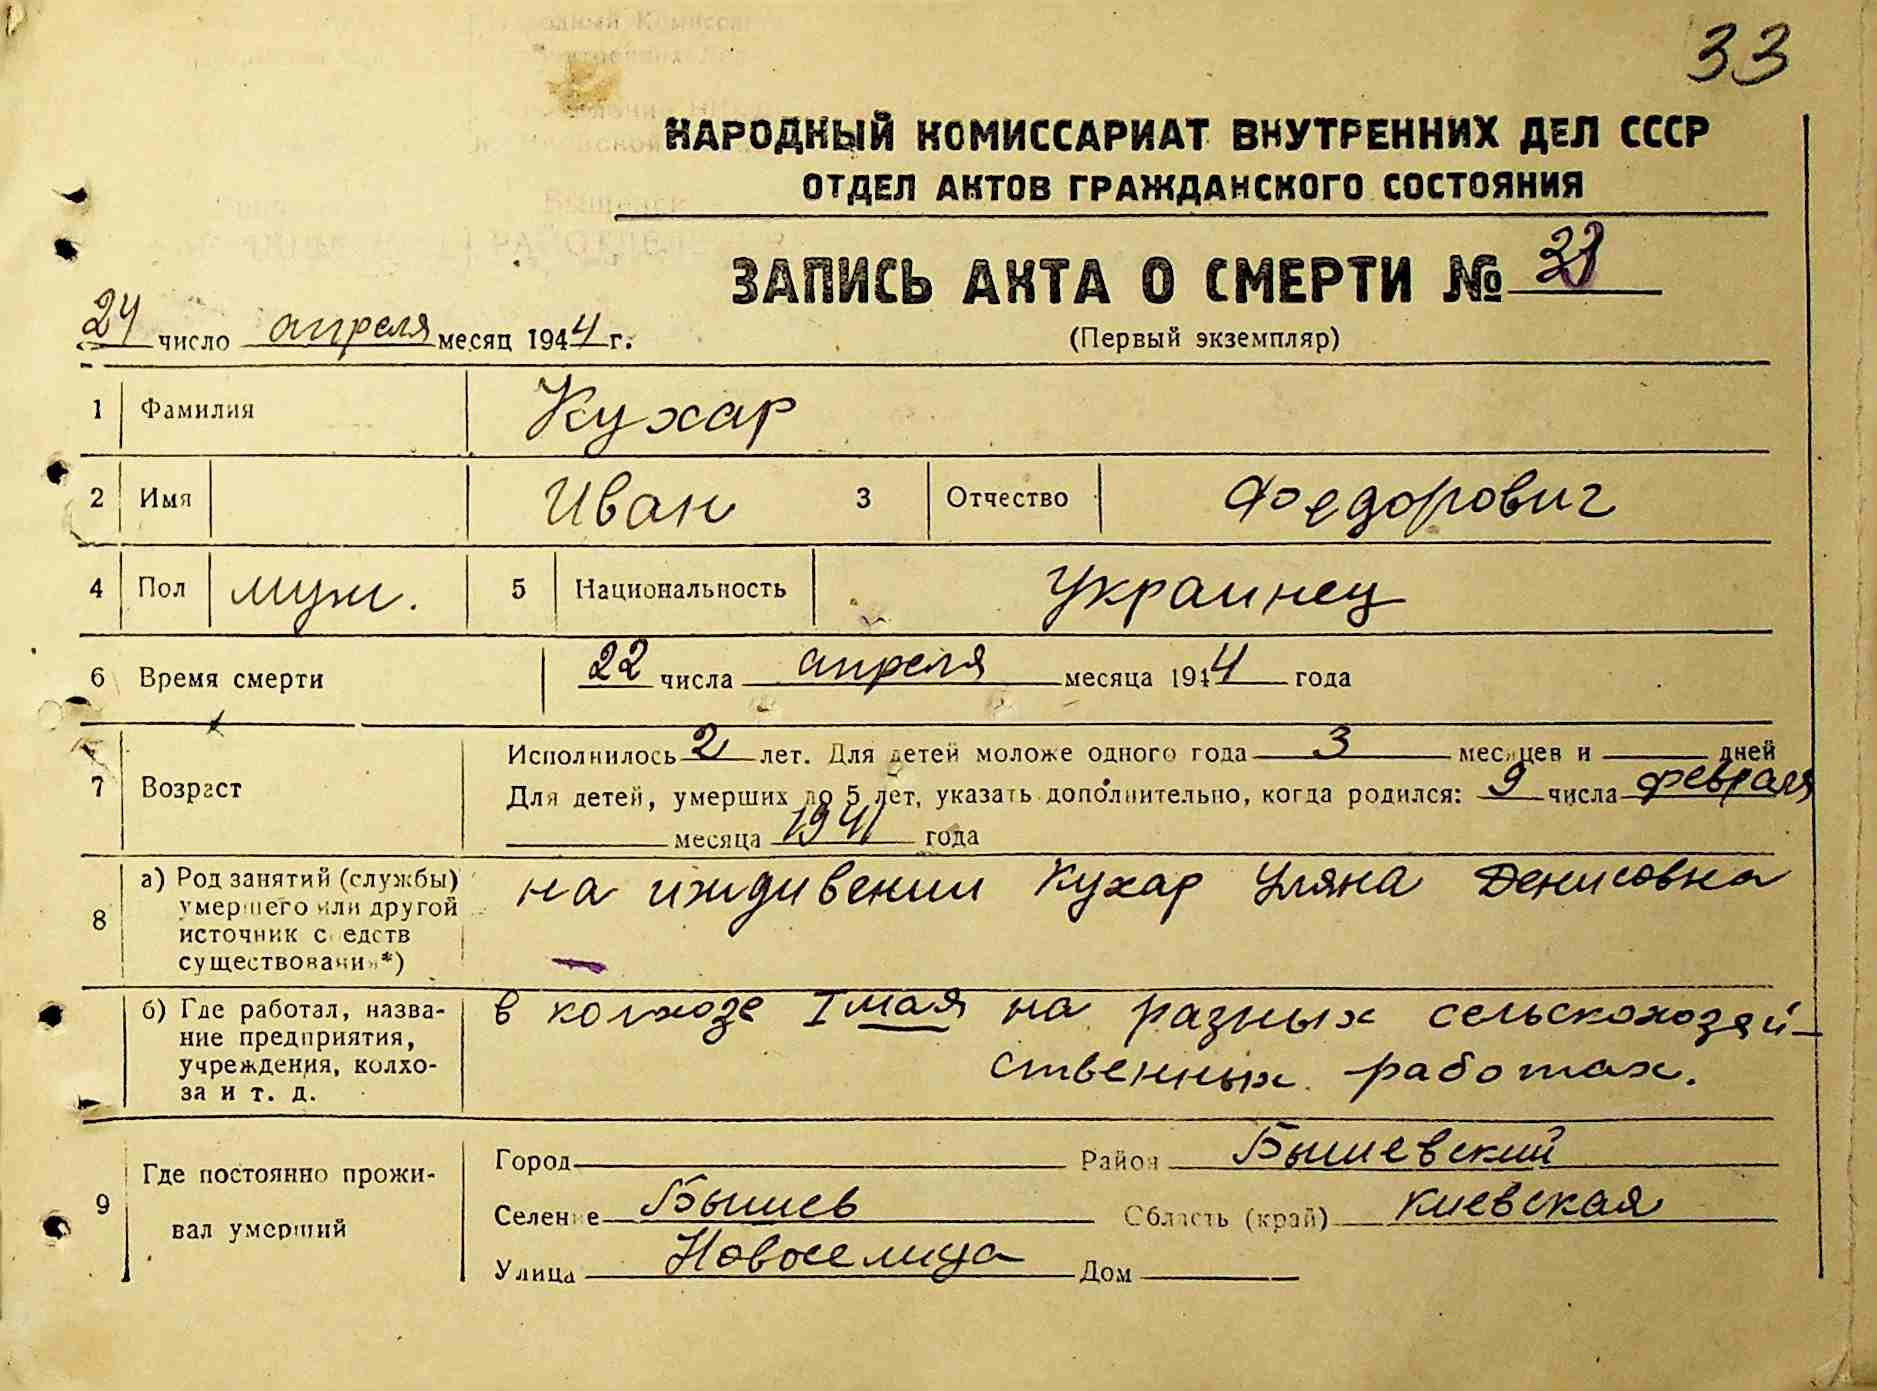 33
НАРОДНЫЙ КОМИССАРИАТ ВНУТРЕННИХ ДЕЛ СССР
ОТДЕЛ АКТОВ ГРАЖДАНСКОГО СОСТОЯНИЯ
ЗАПИСЬ АКТА О СМЕРТИ №
24 число апреля месяц 1944 г.
(Первый экземпляр)
1 Фамилия Кухар
2 Имя Иван 3 Отчество Федорович
4 Пол муж. 5 Национальность Украинец
6 Время смерти 22 числа апреля месяца 1944 года
Исполнилось 2 лет. Для детей моложе одного года 3 месяцев и дней
7 Возраст Для детей, умерших до 5 лет, указать дополнительно, когда родился: 9 числа февраля
месяца 1941 года
8 а) Род занятий (службы) на иждивении Кухар Уляна Денисовна
умершего или другой
источник средств
существования*)
б) Где работал, назва- в колхозе I мая на разных сельскохозяй-
ние предприятия,
учреждения, колхо- ственных работах.
за и т. д.
Город Район Бышевский
9 Где постоянно прожи-
вал умерший
Селение Бышев Область (край) Киевская
Улица Новоселица Дом